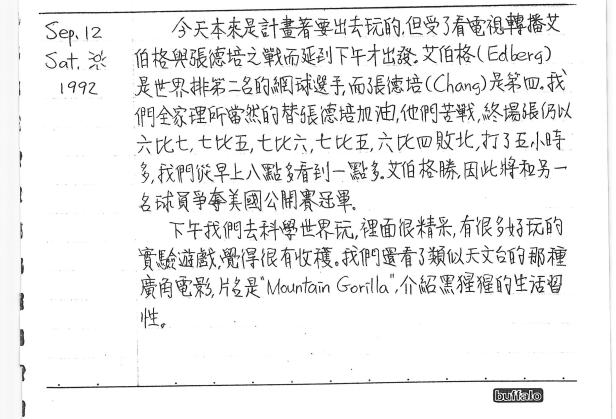 Sep. 12
Sat.
1992
今天本來是計畫著要出去玩的,但受了看電視轉播艾
伯格與張德培之戰而延到下午才出發。艾伯格(Edberg)
是世界排第二名的網球選手,而張德培(Chang)是第四。我
們全家理所當然的替張德培加油,他們苦戰,終場張仍以
六比七,七比五,七比六,七比五,六比四敗北,打了五小時
多,我們從早上八點多看到一點多。艾伯格勝,因此將和另一
名球員爭奪美國公開賽冠軍。
下午我們去科學世界玩,裡面很精采,有很多好玩的
實驗遊戲,覺得很有收穫。我們還看了類似天文台的那種
廣角電影,片名是"Mountain Gorilla",介紹黑猩猩的生活習
性。
buffalo